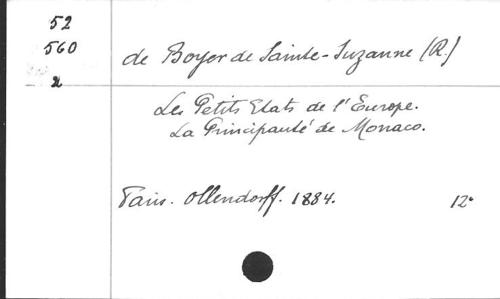 52
560
2
de Boyer de Sainte-Suzanne (R.)
Les Petits Etats de l'Europe.
La Principauté de Monaco.
Paris. Ollendorff. 1884. 12°